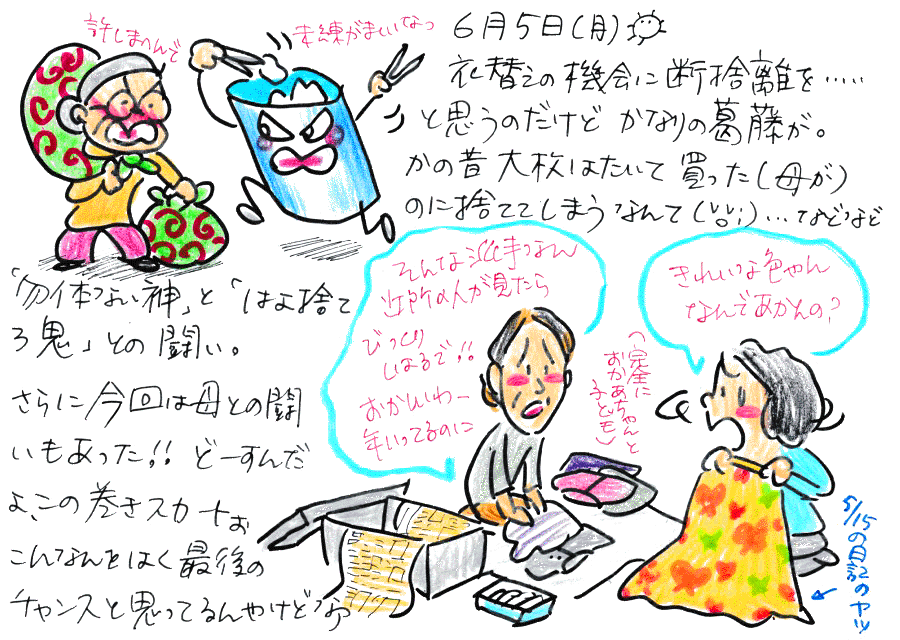 許しまへんで
未練がましいなっ
6月5日(月)
衣替えの機会に断捨離を‥‥‥
と思うのだけど かなりの葛藤が。
かの昔 大枚はたいて 買った(母が)
のに捨ててしまうなんて( ; )…などなど
「勿体ない神」と「はよ捨て
ろ鬼」との闘い。
さらに今回は母との闘
いもあった!! どーすんだ
よ、この巻きスカートぉ
こんなんをはく最後の
チャンスと思ってるんやけどなぁ
そんな派手なん
近所の人が見たら
びっくり
しはるで!!
おかんいわー
年いってるのに
(完全に
おかあちゃんと
子ども)
きれいな色やん
なんであかんの?
5/15の日記のヤツ